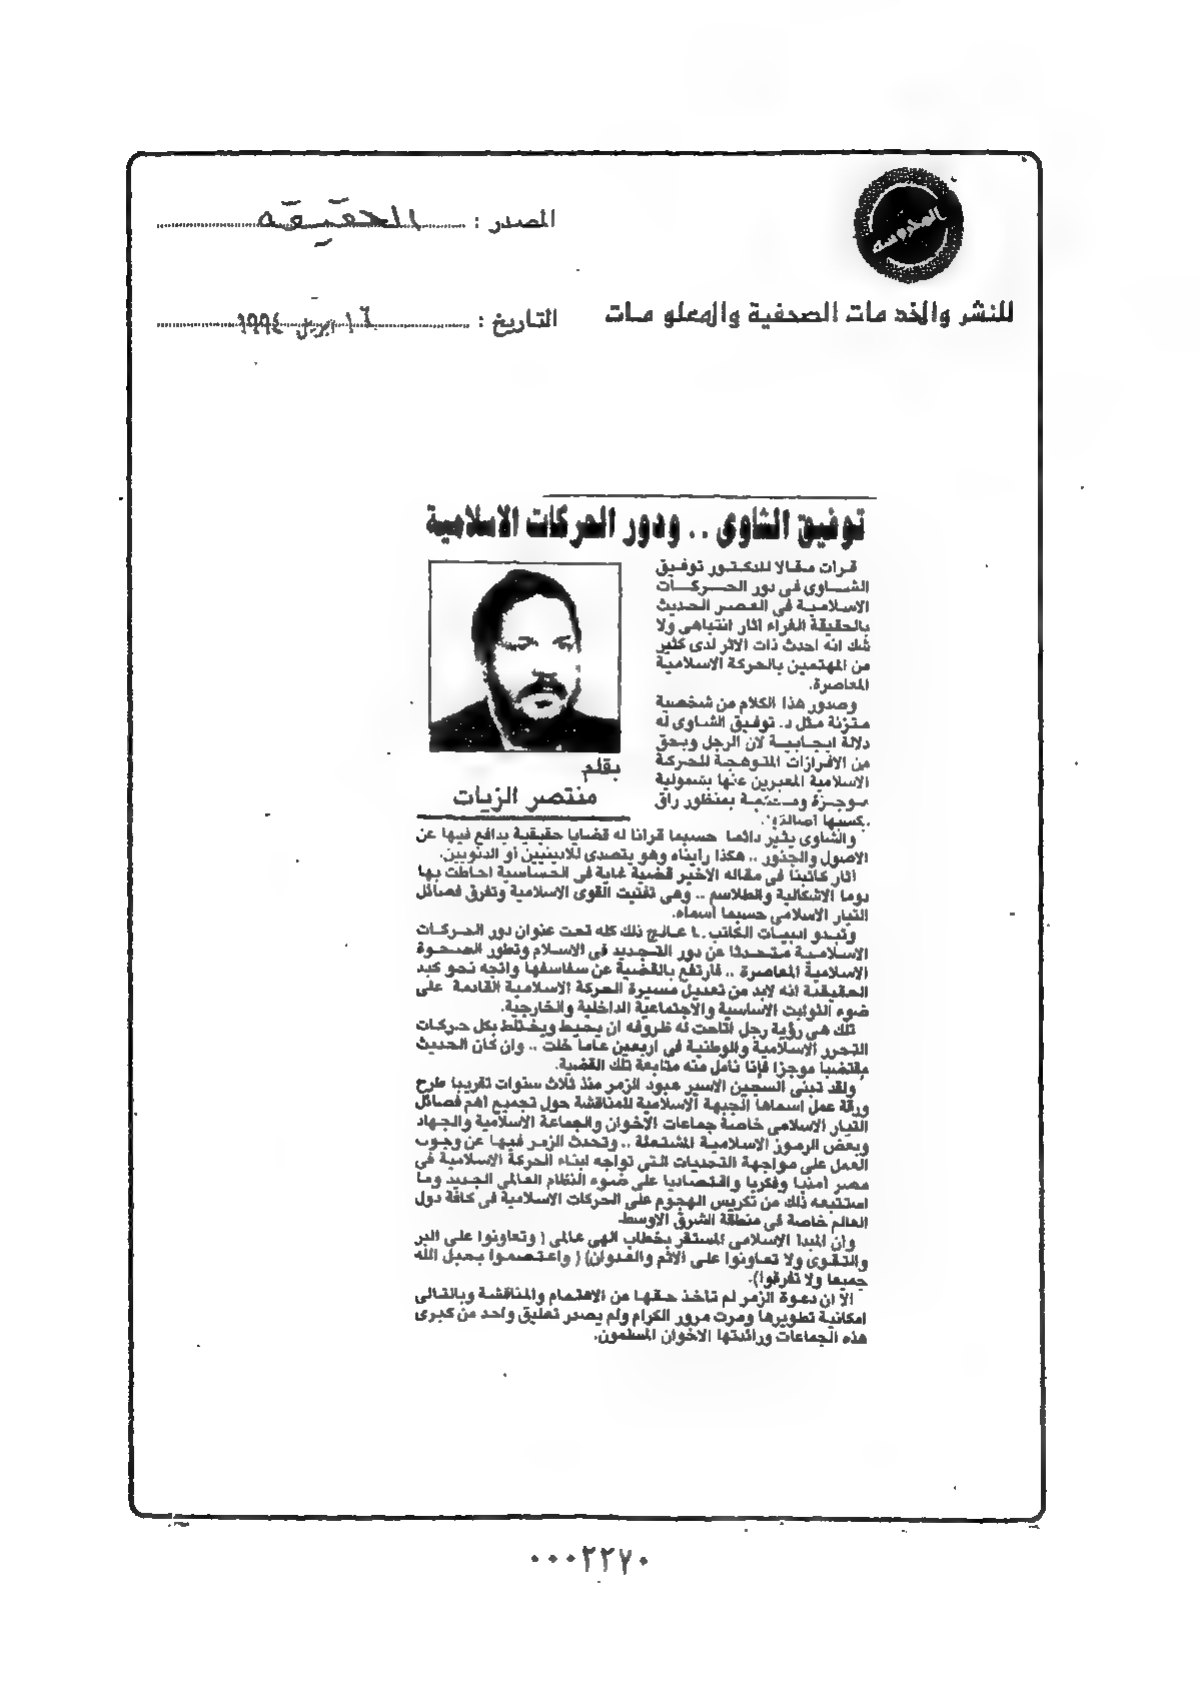 المحروسه
المصدر : الحقيقه
للنشر والخدمات الصحفية والمعلومات
التاريخ : ١٦ ابريل ١٩٩٤
توفيق الشاوى .. ودور الحركات الاسلامية
قرات مقالا للدكتور توفيق
الشاوى فى دور الحركات
الاسلامية فى العصر الحديث
بالحقيقة الغراء اثار انتباهى ولا
شك انه احدث ذات الاثر لدى كثير
من المهتمين بالحركة الاسلامية
المعاصرة.
وصدور هذا الكلام من شخصية
متزنة مثل د. توفيق الشاوى له
دلالة ايجابية لان الرجل وبحق
من الافرازات المتوهجة للحركة
الاسلامية المعبرين عنها بشمولية
موجزة بمنظور راق
يكسبها اصالة.
بقلم
منتصر الزيات
والشاوى يثير دائما حسبما قرانا له قضايا حقيقية يدافع فيها عن
الاصول والجذور .. هكذا رايناه وهو يتصدى للادينيين أو الدنويين.
اثار كاتبنا فى مقاله الاخير قضية غاية فى الحساسية احاطت بها
دوما الاشكالية والطلاسم .. وهى تفتيت القوى الاسلامية وتفرق فصائل
التيار الاسلامى حسبما أسماه.
وتبدو ادبيات الكاتب .. عالج ذلك كله تحت عنوان دور الحركات
الاسلامية متحدثا عن دور التجديد فى الاسلام وتطور الصحوة
الاسلامية المعاصرة .. فارتفع بالقضية عن سفاسفها واتجه نحو كبد
الحقيقة انه لابد من تعديل مسيرة الحركة الاسلامية القادمة على
ضوء الثوابت الاساسية والاجتماعية الداخلية والخارجية.
تلك هى رؤية رجل اتاحت له ظروفه ان يحيط ويختلط بكل حركات
التحرر الاسلامية والوطنية فى اربعين عاما خلت .. وان كان الحديث
مقتضبا موجزا فإنا نأمل منه متابعة تلك القضية.
ولقد تبنى السجين الاسير عبود الزمر منذ ثلاث سنوات تقريبا طرح
ورقة عمل اسماها الجبهة الاسلامية للمناقشة حول تجميع اهم فصائل
التيار الاسلامى خاصة جماعات الإخوان والجماعة الاسلامية والجهاد
وبعض الرموز الاسلامية المشتعلة .. وتحدث الزمر فيها عن وجوب
العمل على مواجهة التحديات التى تواجه ابناء الحركة الاسلامية فى
مصر امنيا وفكريا واقتصاديا على ضوء النظام العالمى الجديد وما
استتبعه ذلك من تكريس الهجوم على الحركات الاسلامية فى كافة دول
العالم خاصة فى منطقة الشرق الاوسط.
وان المبدا الاسلامى المستقر بخطاب الهى عالمى ( وتعاونوا على البر
والتقوى ولا تعاونوا على الاثم والعدوان) ( واعتصموا بحبل الله
جميعا ولا تفرقوا).
الا ان دعوة الزمر لم تأخذ حقها من الاهتمام والمناقشة وبالتالى
امكانية تطويرها ومرت مرور الكرام ولم يصدر تعليق واحد من كبرى
هذه الجماعات ورائدتها الاخوان المسلمون.
٠٠٠٢٢٧٠